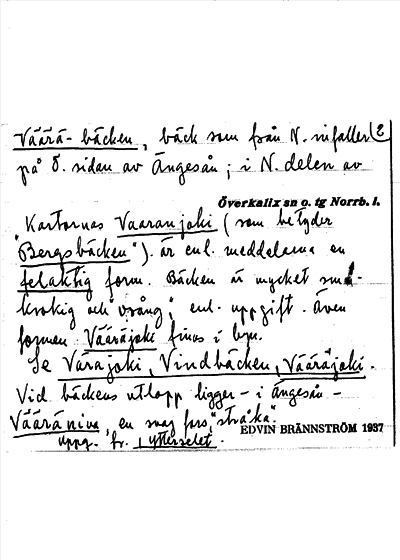 Väärä-bäcken, bäck som från N. infaller (2
på Ö. sidan av Ängesån; i N. delen av
Överkalix sn o. tg Norrb. l.
"Kartornas Vaaranjoki (som betyder
"Bergsbäcken") är enl. meddelarna en
felaktig form. Bäcken är mycket små-
krokig och vrång", enl. uppgift. Även
formen Vääräjoki finns i byn.
Se Varajoki, Vindbäcken, Vääräjoki.
Vid bäckens utlopp ligger - i Ängesån -
Vääräniva, en svag fors, "stråka".
Uppg. fr. Ytterselet.
EDVIN BRÄNNSTRÖM 1937